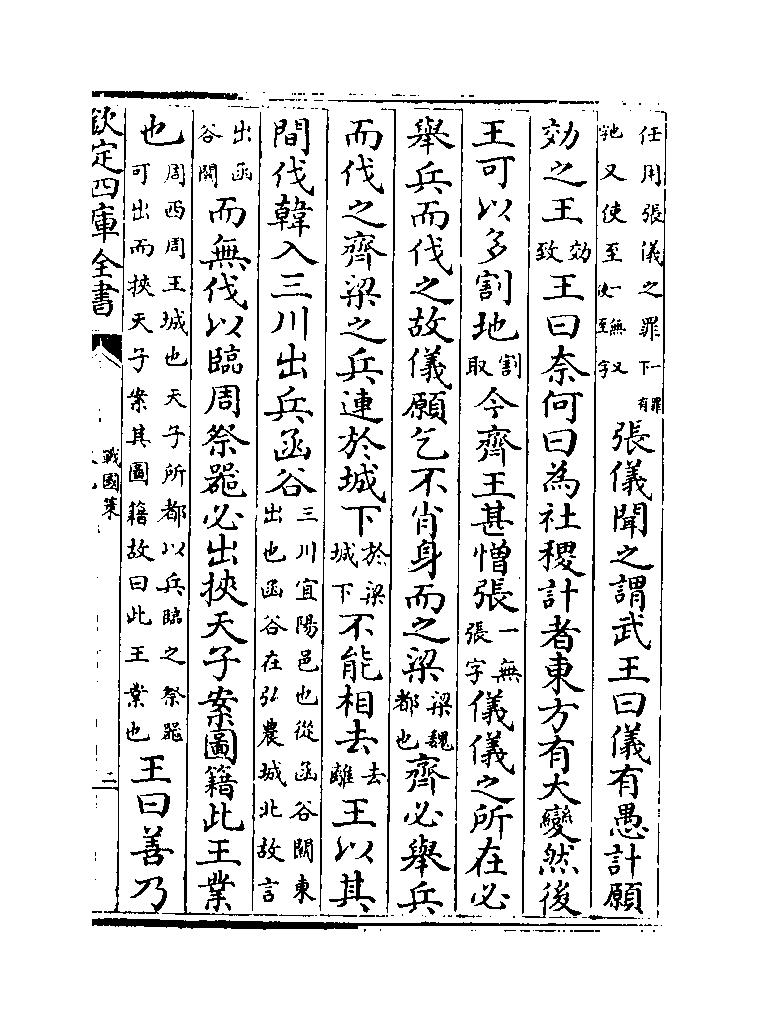 任用張儀之罪一罪下有地又使至一無又使至字張儀聞之謂武王曰儀有愚計願
効之王効致王曰奈何曰為社稷計者東方有大變然後
王可以多割地割取今齊王甚憎張一無張字儀儀之所在必
舉兵而伐之故儀願乞不肖身而之梁梁魏都也齊必舉兵
而伐之齊梁之兵連於城下於梁城下不能相去去離王以其
間伐韓入三川出兵函谷三川宜陽邑也從函谷關東出也函谷在弘農城北故言
出函谷關而無伐以臨周祭器必出挾天子案圖籍此王業
也周西周王城也天子所都以兵臨之祭器可出而挾天子案其圖籍故曰此王業也王曰善乃
欽定四庫全書
戰國策
二